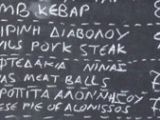 MB KEBAP
ΙΡΙΝΗ ΔΙΑΒΟΛΟΥ
VILS PORK STEAK
ΦΤΕΔΑΚΙΑ ΝΙΝΑΣ
AS MEAT BALLS
ΡΟΠΙΤΑ ΑΛΟΝΝΗΣΟΥ
ESE PIE OF ALONISSOS